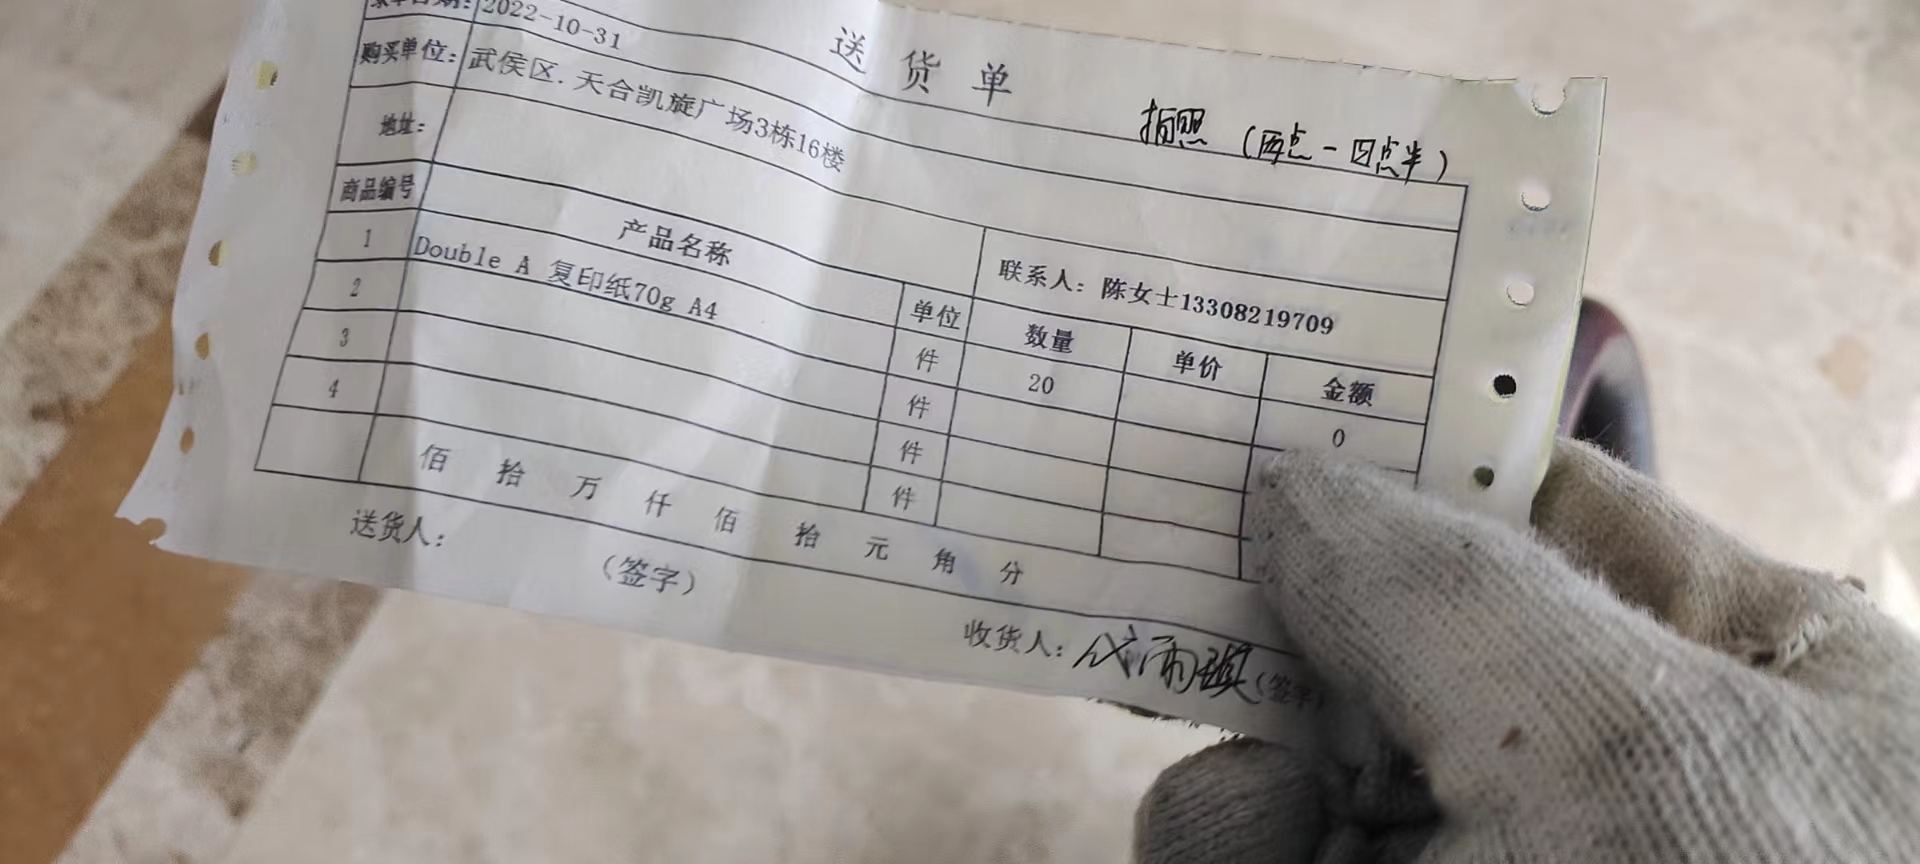 送货单
2022-10-31
购买单位: 武侯区.天合凯旋广场3栋16楼
拍照 (两点-四点半)
地址:
联系人: 陈女士13308219709
商品编号 产品名称 单位 数量 单价 金额
1 Double A 复印纸70g A4 件 20 0
2 件
3 件
4 件
佰 拾 万 仟 佰 拾 元 角 分
送货人: (签字)
收货人: (签字)